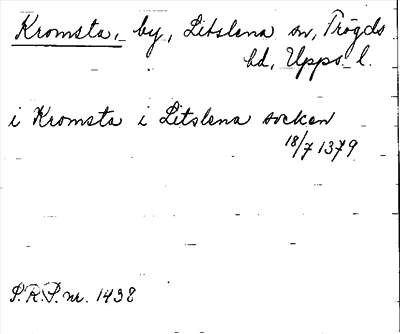 Kromsta, by, Litslena sn, Trögds
hd, Upps. l.
i Kromsta i Litslena socken
18/7 1379
S.R.P. nr. 1438